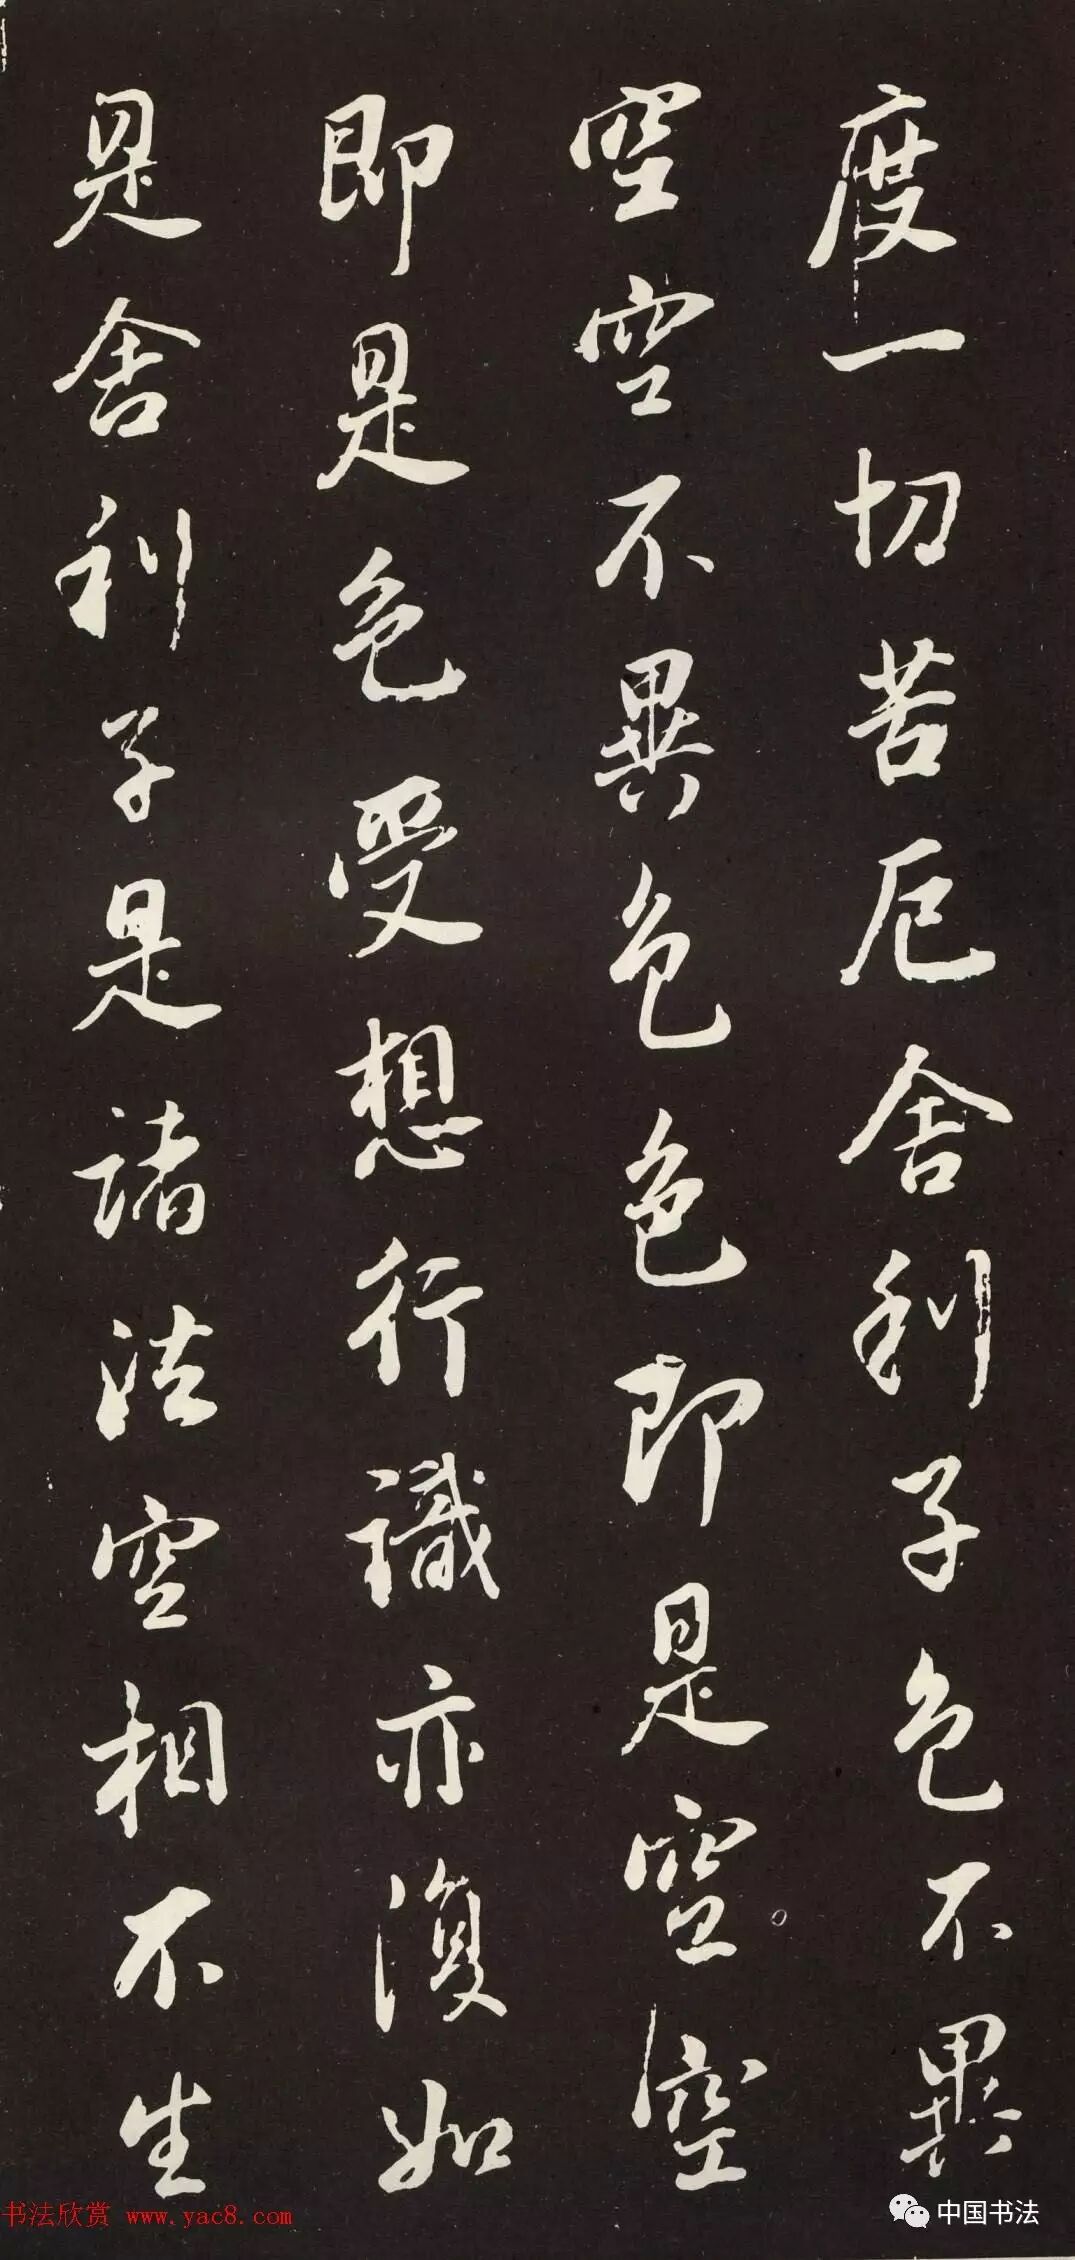 度一切苦厄舍利子色不異
空空不異色色即是空空
即是色受想行識亦復如
是舍利子是諸法空相不生
书法欣赏 www.yac8.com
中国书法